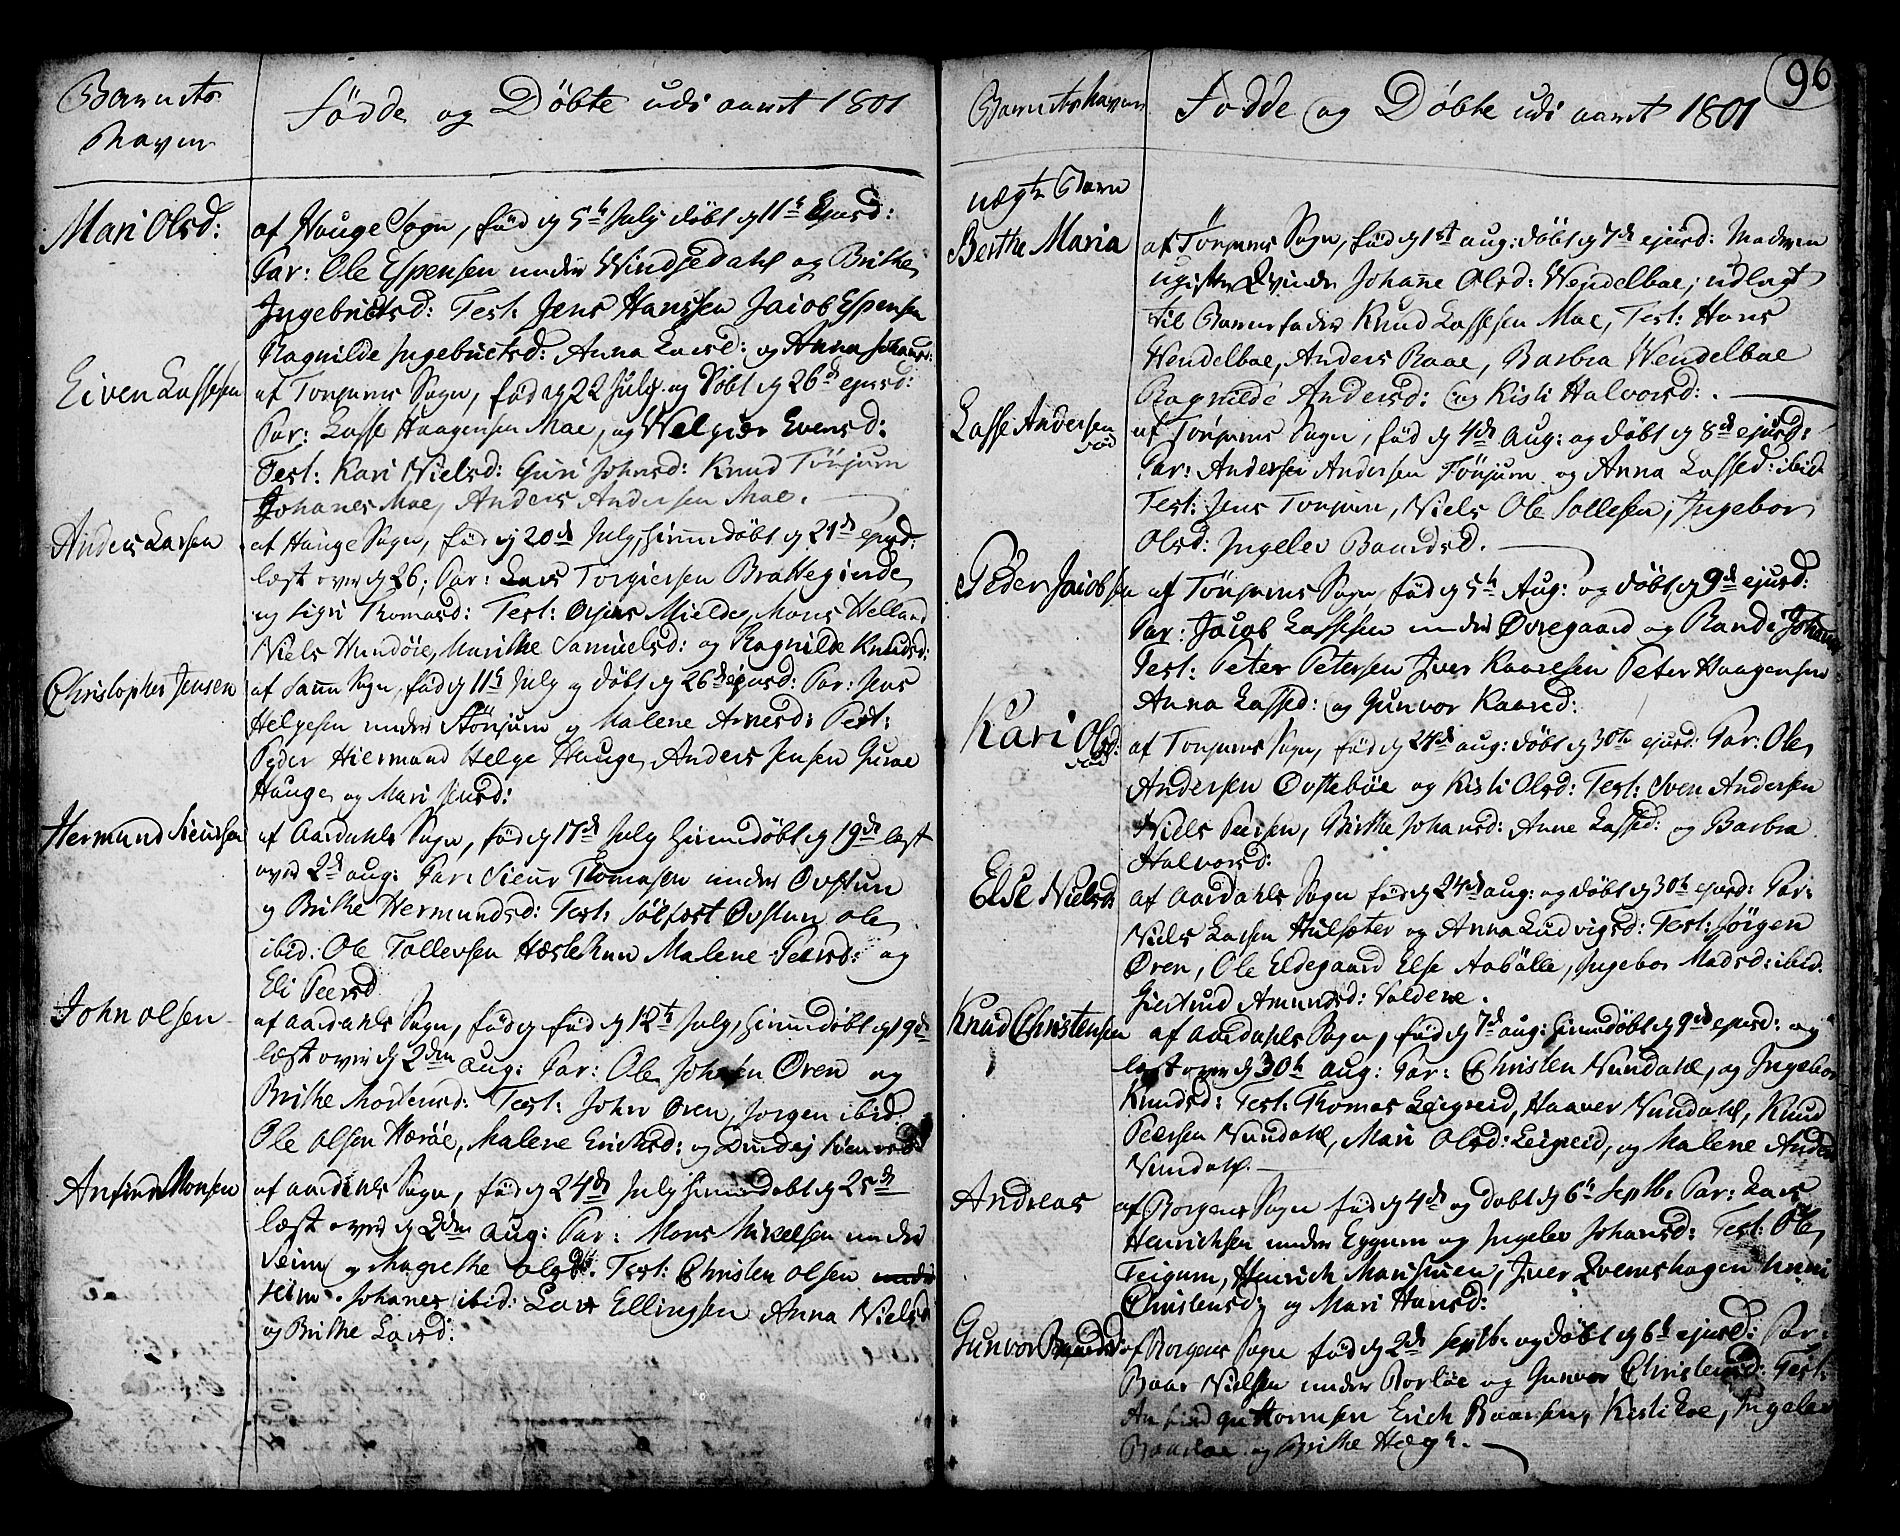 Barnets
Navn
Födde og Döbte udi aaret 1801
Mari Olsd:
af Hauge Sogn, föd d 5te July döbt d 11te Ejusd:
Par: Ole Espensen under Windsedahl og Brithe
Ingebrictsd: Test: Jens Hanssen Jacob Espensen
Ragnilde Ingebrictsd: Anna Larsd: og Anna Johansd:
Eiven Lassesen
af Tonjums Sogn, föd d 22 July og Döbt d 26de ejusd:
Par: Lasse Haagensen Mae, og Welgier Evensd:
Test: Kari Nielsd: Guri Johnsd: Knud Tönjum
Johanes Mae, Anders Andersen Mae.
Anders Larsen
af Hauge Sogn, föd d 20de July, hiemdöbt d 21de ejusd:
læst over d 26; Par: Lars Torgiersen Brattegierde
og Sigri Thomasd: Test: Mielde, Mons Helland
Niels Hundöie, Marithe Samuelsd: og Ragnilde Knudsd:
Christopher Jensen
af Sogn, föd d 11te July og döbt d 26de ejusd: Par: Jens
Helgesen under Stönjum og Malene Arnesd: Test:
Peder Hiermand Helge Hauge, Anders Jensen Guroe
Hauge og Mari Jensd:
Hermund Sieursen
af Aardahls Sogn, föd d 17de July hiemdöbt d 19de læst
over 2de aug: Par: Sieur Thomasen under Ovstun
og Brithe Hermundsd: Test: Sölfest Ovstun Ole
ibid: Ole Tollevsen Hestetun Malene Peersd: og
Eli Peersd
John Olsen
af Aardahls Sogn, föd d föd d 12te July, hiemdöbt d 19de
læst over d 2den aug: Par: Ole Johnsen Ören og
Brithe Mortensd: Test: John Ören, Jörgen ibid:
Ole Olsen Heröe, Malene Erichsd: og
Anfind Monsen
af Aardahls Sogn, föd d 24de July hiemdöbt d 25de
læst over d 2den aug: Par: Mons Mikelsen under
Seim og Magrethe Olsd: Test: Christen Olsen under
Seim. Johanes ibid: Lars Ellingsen Anna Nielsd
og Brithe Larsd:
96
Barnets Navn
Födde og Döbte udi aaret 1801
uægte Barn
Berthe Maria
af Tönjums Sogn, föd d 1st aug: döbt d 7de ejusd: Moderen
ugifte Qvinde Johane Olsd: Wendelboe; udlagt
til Barnefader Knud Lassesen Mae, Test: Hans
Wendelboe, Anders Raae, Barbra Wendelboe
Ragnilde Andersd: og Kisti Halvorsd:
Lasse Andersen
af Tönjums Sogn, föd d 4de Aug: og döbt d 8de ejusd:
Par: Andersen Andersen Tönjum og Anna Lassed: ibid
Test: Jens Tonjum, Niels Ole Sollesen; Ingebor
Olsd: Ingelev Baardsd.
Peder Jacobsen
af Tönjums Sogn föd d 5te Aug: og döbt d 9de ejusd:
Par: Jacob Lassesen under Övregaard og Randi Johans
Test: Peter Petersen Iver Kaaresen Peter Haagensen
Anna Lassed: og Gunvor Kaared:
Kari Olsd:
af Tonjums Sogn, föd d 24de aug: döbt d 30te ejusd: Par: Ole
Andersen Ovsteböe og Kisti Olsd: Test: Iven Andersen
Niels Peersen, Birthe Johansd: Anne Lassed: og Barbra
Halvorsd:
Else Nielsd
af Aardahls Sogn föd d 24de aug: og döbt d 30te ejusd: Par:
Niels Lassen Hulsæter og Anna Ludvigsd: Test: Jörgen
Ören, Ole Eldegaard Else Aabölle, Ingebor Madsd: ibid.
Giertrud Amundsd: Voldene.
Knud Christensen
af Aardahls Sogn, föd d 7de aug: hiemdöbt d 9de ejusd: og
læst over d 30te aug: Par: Christen Nundahl, og Ingebor
Knudsd: Test: Thomas Leigreid, Haaver Nundahl, Knud
Peersen Nundahl, Mari Olsd: Leigreid, og Malene Anders
Nundahl.
Andreas
af Borgens Sogn föd d 4de og döbt d 6te Septb: Par: Lars
Henrichsen under Eggum og Ingelev Johansd: Test: Ole
Teigum, Henrich Iver Qvemshagen
Christensd; og Mari Hansd:
Gunvor Baardsd
af Borgens Sogn föd d 2de Septb: og döbt d 6te ejusd: Par:
Baar Nielsen under Borlöe og Gunvor Christensd: Test:
Anfind Erich Baarsen, Kisti Loe, Ingelev
og Brithe Hæg.